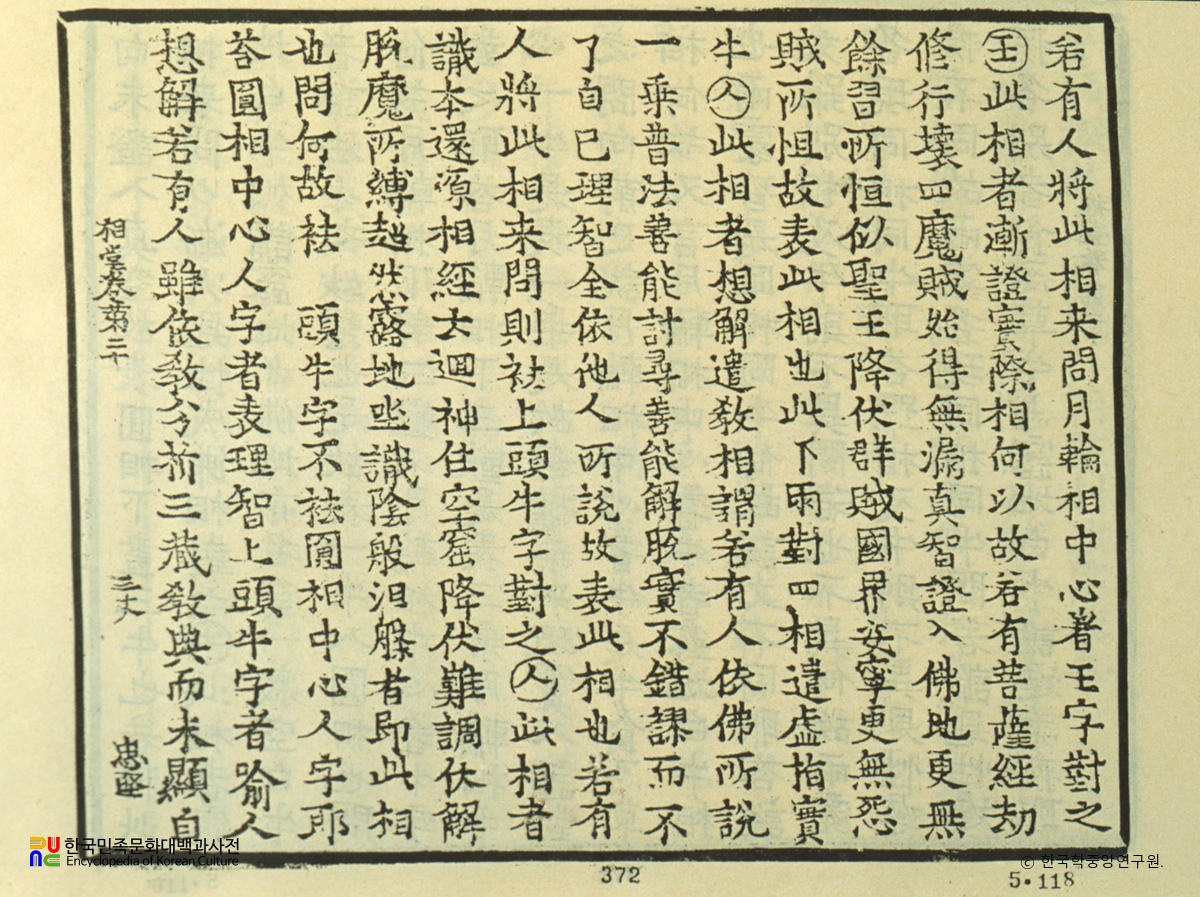 若有人將此相来問月輪相中心著王字對之
王此相者漸證實際相何以故若有菩薩經劫
修行壞四魔賊始得無漏真智證入佛地更無
餘習所恒似聖王降伏群賊國界安寧更無怨
賊所怛故表此相也此下兩對四相遣虛指實
牛人此相者想解遣敎相謂若有人依佛所說
一乘普法善能討尋善能解脫實不錯謬而不
了自已理智全依他人所說故表此相也若有
人將此相来問則袪上頭牛字對之人此相者
識本還源相經云迴神住空窟降伏難調伏解
脫魔所縛超然露地坐識陰般汩槃者即此相
也問何故袪 頭牛字不袪圓相中心人字耶
荅圓相中心人字者表理智上頭牛字者喻人
想解若有人雖依敎分析三藏敎典而未顯自
相堂卷第二十 三丈 忠堅
한국민족문화대백과사전
Encyclopedia of Korean Culture
372
5·118
© 한국학중앙연구원.